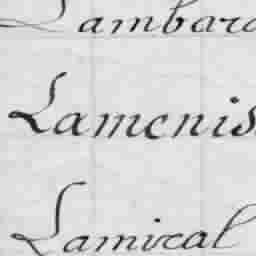 Lambard
Lamenis
Lamiral